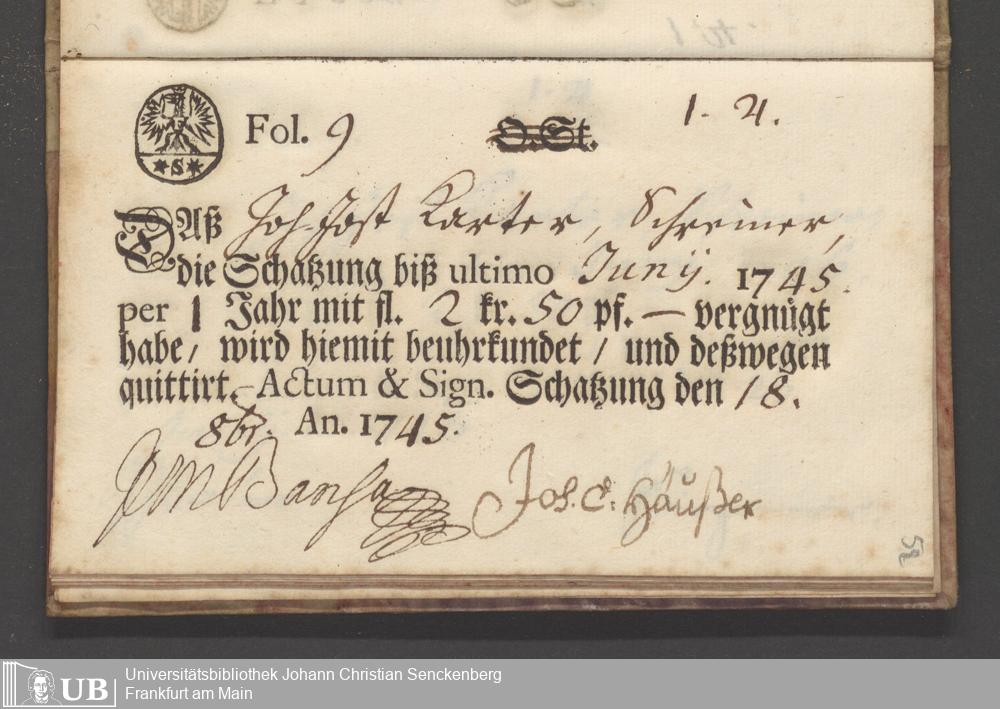 Fol. 9 O.St. 1. 4.
*S*
Daß Joh. Jost Karter, Schreiner,
die Schatzung biß ultimo Junij. 1745.
per 1 Jahr mit fl. 2 kr. 50 pf. — vergnügt
habe / wird hiemit beuhrkundet / und deßwegen
quittirt. Actum & Sign. Schatzung den 18.
8br. An. 1745.
JMBansa Joh. C. Häußer
52
Universitätsbibliothek Johann Christian Senckenberg
UB Frankfurt am Main